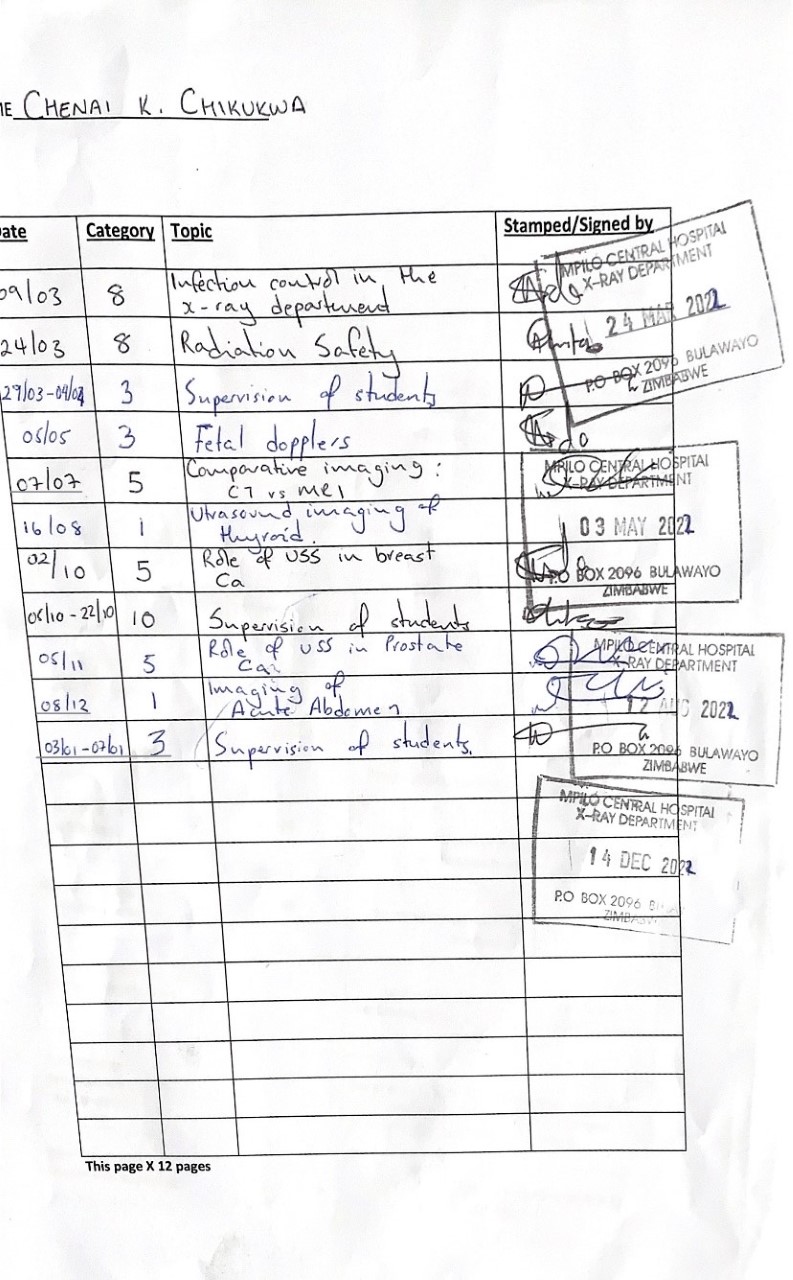 ME CHENAI K. CHIKUKWA
Date Category Topic Stamped/Signed by
09/03 8 Infection control in the
x-ray department
24/03 8 Radiation Safety
29/03-09/04 3 Supervision of students
05/05 3 Fetal dopplers
07/07 5 Comparative imaging :
CT vs MRI
16/08 1 Utrasound imaging of
thyroid.
02/10 5 Role of USS in breast
Ca
05/10-22/10 10 Supervision of students
05/11 5 Role of USS in Prostate
Ca
08/12 1 Imaging of
Acute Abdomen
03/01-07/01 3 Supervision of students.
MPILO CENTRAL HOSPITAL
X-RAY DEPARTMENT
24 MAR 2022
P.O BOX 2096 BULAWAYO
ZIMBABWE
MPILO CENTRAL HOSPITAL
X-RAY DEPARTMENT
03 MAY 2022
P.O BOX 2096 BULAWAYO
ZIMBABWE
MPILO CENTRAL HOSPITAL
X-RAY DEPARTMENT
12 AUG 2022
P.O BOX 2096 BULAWAYO
ZIMBABWE
MPILO CENTRAL HOSPITAL
X-RAY DEPARTMENT
14 DEC 2022
P.O BOX 2096
This page X 12 pages